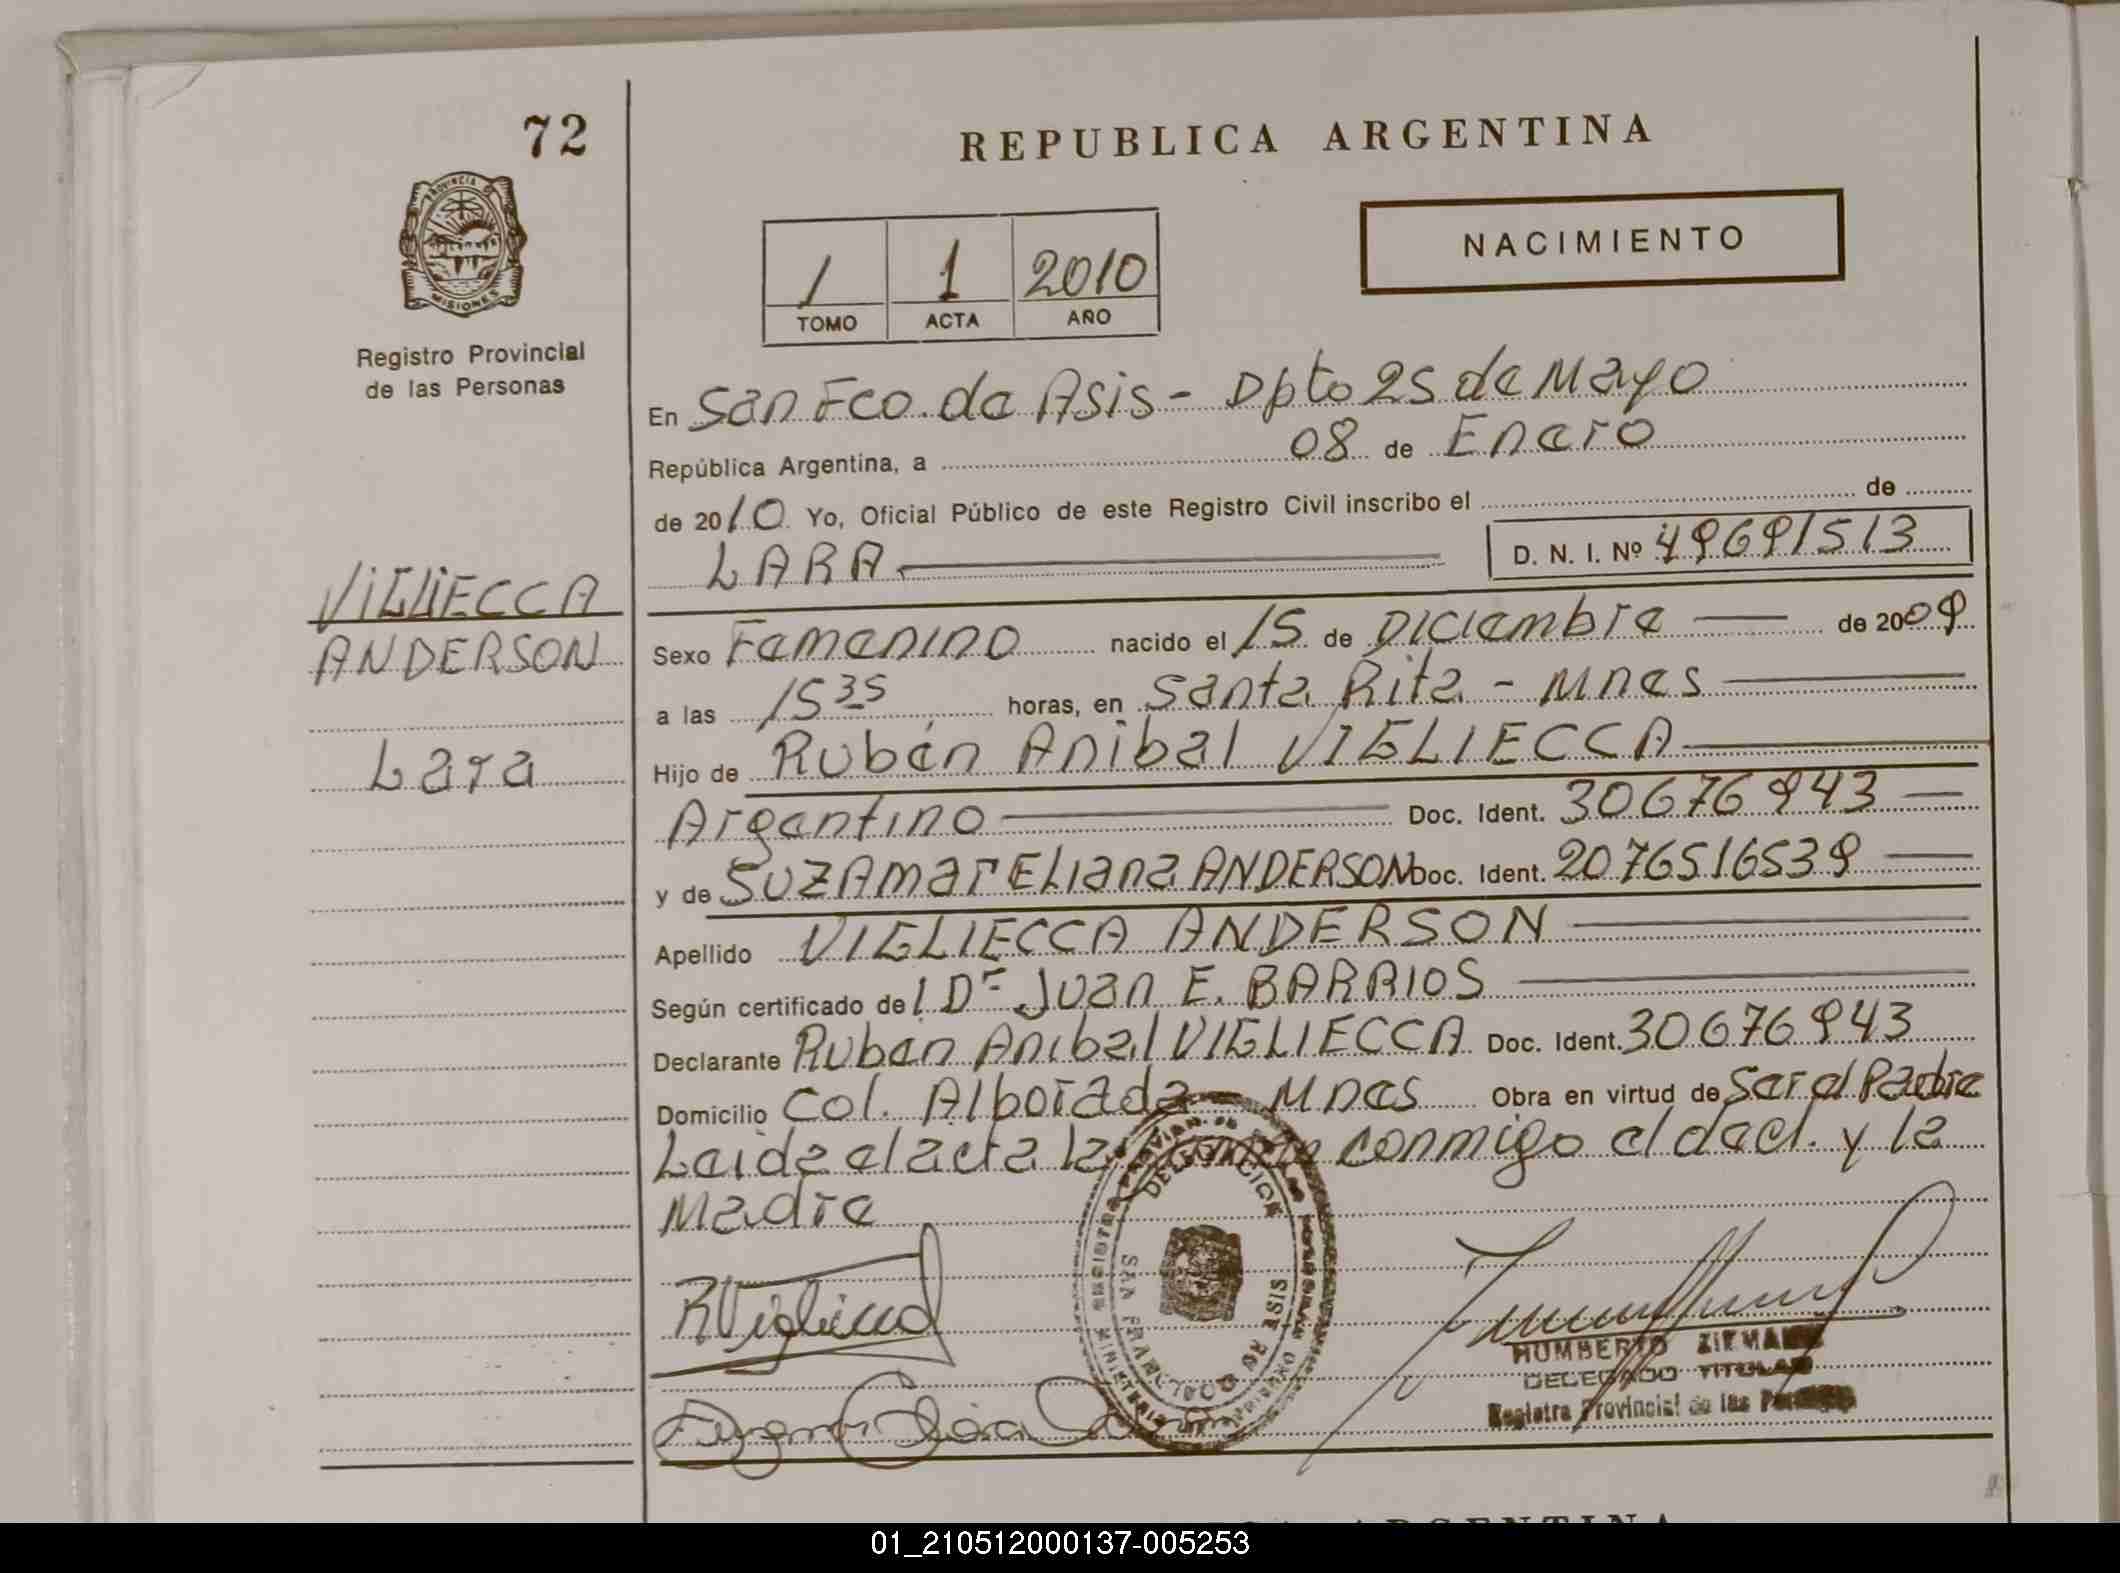 72
REPUBLICA ARGENTINA
PROVINCIA DE
MISIONES
Registro Provincial
de las Personas
1 1 2010
TOMO ACTA AÑO
NACIMIENTO
En San Fco. de Asis - Dpto 25 de Mayo
República Argentina, a 08 de Enero
de 2010 Yo, Oficial Público de este Registro Civil inscribo el de
LARA D. N. I. Nº 49691513
VIGLIECCA
ANDERSON
Lara
Sexo Femenino nacido el 15 de Diciembre de 2009
a las 15 35 horas, en Santa Rita - Mnes
Hijo de Rubén Anibal VIGLIECCA
Argentino Doc. Ident. 30676943
y de SUZAmar ELiana ANDERSON Doc. Ident. 2076516539
Apellido VIGLIECCA ANDERSON
Según certificado del Dr Juan E. BARRIOS
Declarante Ruben Anibal VIGLIECCA Doc. Ident. 30676943
Domicilio Col. Alborada - Mnes Obra en virtud de Ser el Padre
Leida el acta la conmigo el decl. y la
Madre
DELEGACION
SAN FRANCISCO DE ASIS
HUMBERTO
DELEGADO TITULAR
Registro Provincial de las
01_210512000137-005253